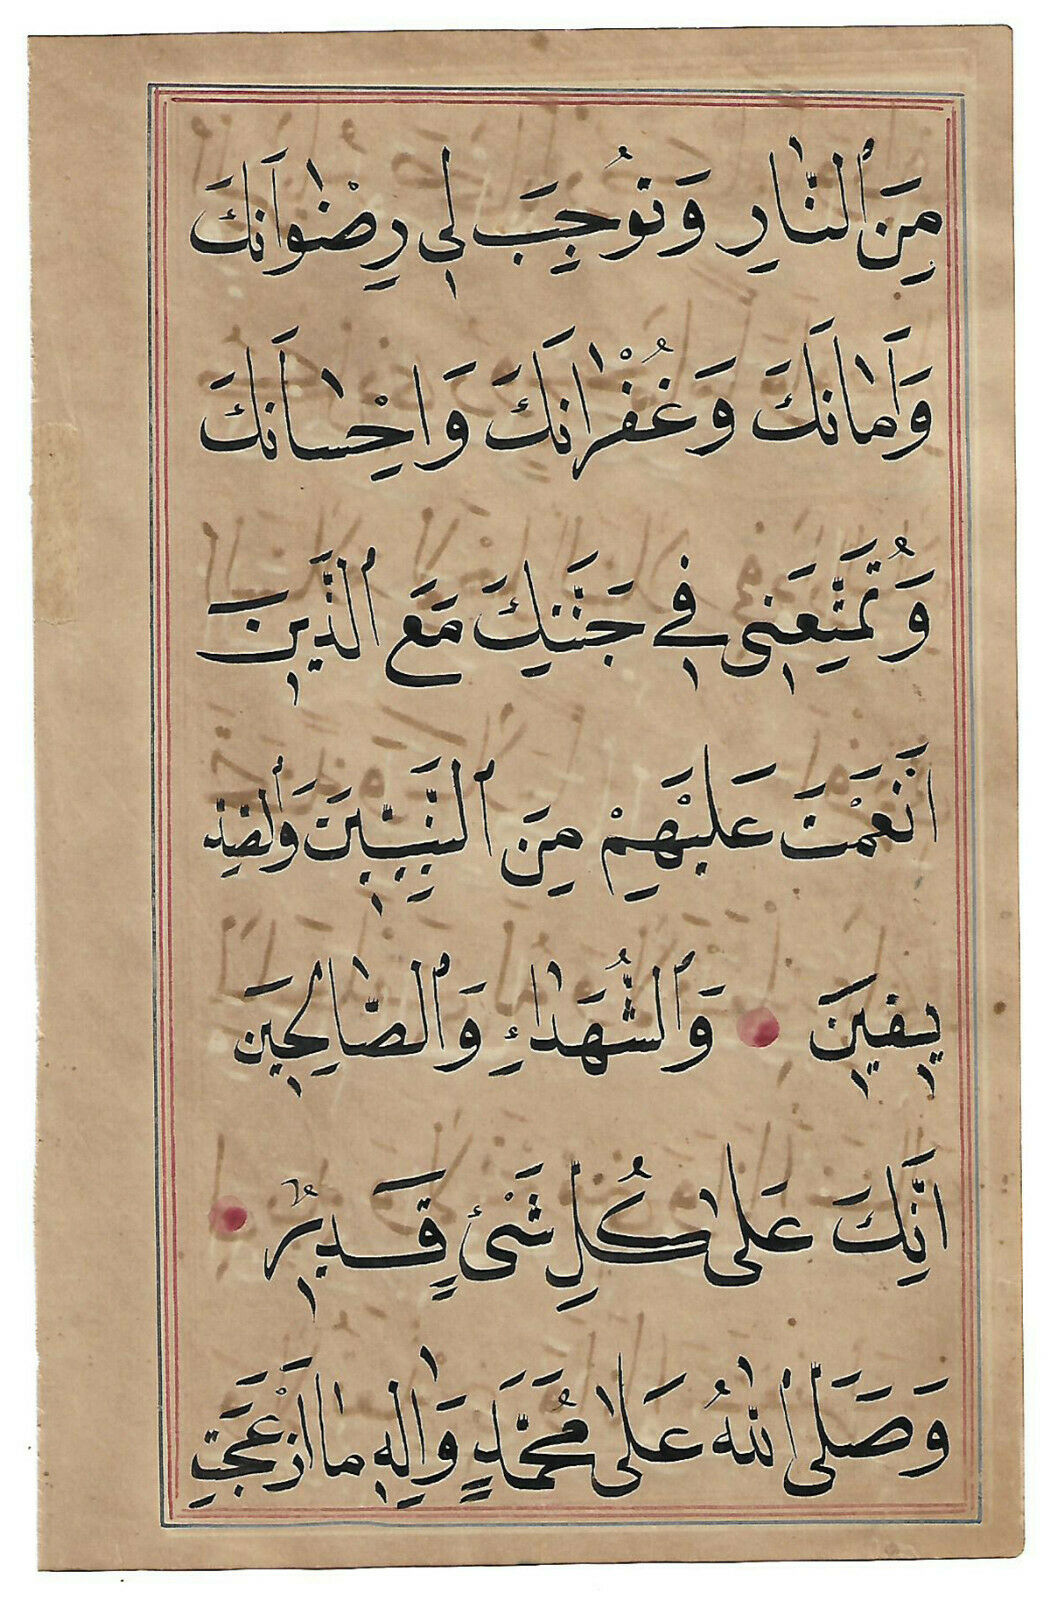 مِنَ ٱلنّٰارِ وَ تُوجِبَ لٖي رِضْوٰانَكَ
وَ اَمٰانَكَ وَ غُفْرٰانَكَ وَ اِحْسٰانَكَ
وَ تُمَتِّعَنٖي فٖي جَنَّتِكَ مَعَ ٱلَّذٖينَ
اَنْعَمْتَ عَلَيْهِمْ مِنَ ٱلنَّبِيّٖينَ وَٱلصِّدّٖ
يقٖينَ وَٱلشُّهَدٰاءِ وَٱلصّٰالِحٖينَ
اِنَّكَ عَلىٰ كُلِّ شَيْءٍ قَدٖيرٌ
وَ صَلَّى ٱللّٰهُ عَلىٰ مُحَمَّدٍ وَ اٰلِهٖ مٰا اَزْعَجَتِ